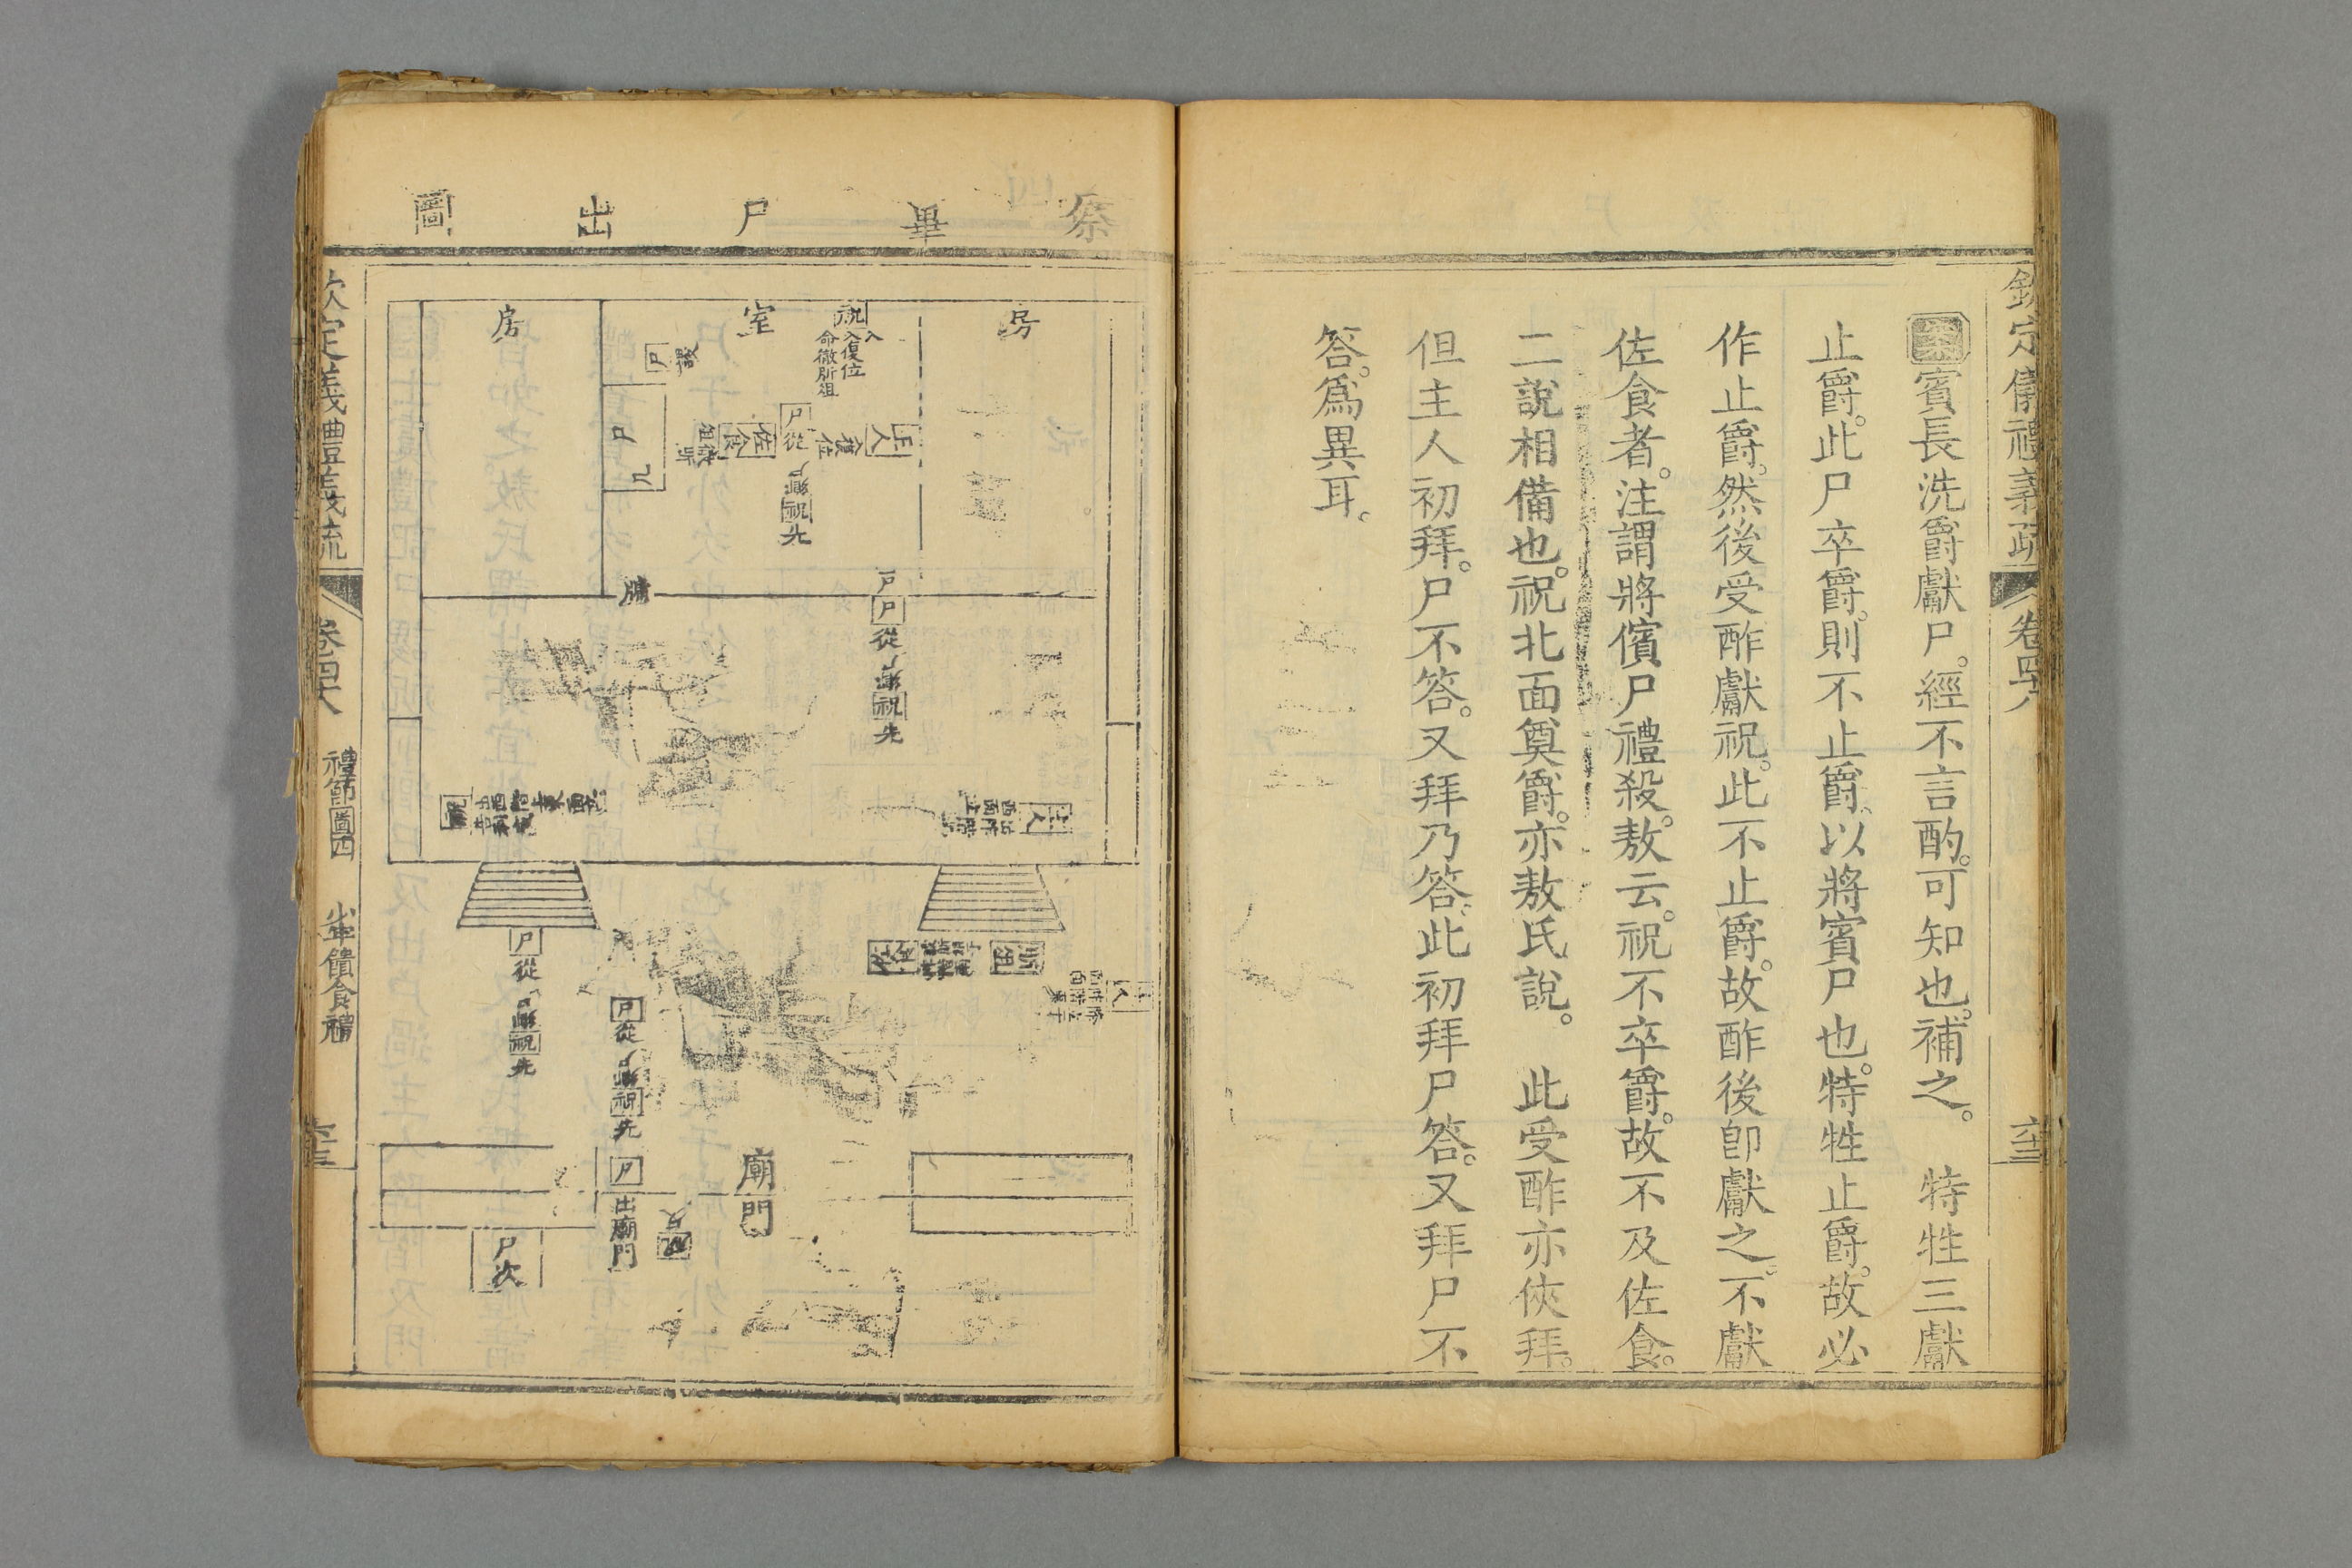 欽定儀禮義疏 卷四十八 六十三
案賓長洗爵獻尸。經不言酌。可知也。補之。 特牲三獻
止爵。此尸卒爵。則不止爵、以將賓尸也。特牲止爵。故必
作止爵。然後受酢獻祝。此不止爵。故酢後卽獻之。不獻
佐食者。注謂將儐尸禮殺。敖云。祝不卒爵。故不及佐食。
二說相備也。祝北面奠爵。亦敖氏說。 此受酢亦俠拜。
但主人初拜。尸不答。又拜乃答、此初拜尸答。又拜尸不
答。爲異耳。
祭畢尸出圖
房
室
房
祝
入復位
命徹肵俎
尸
謖
主人
復位
尸
從
祝
先
佐食
徹肵
俎
尸
几
戶
牖
尸
從
祝
先
主人
出
立
阼階
西面
祝
尸
從
祝
先
尸
從
祝
先
尸
出廟門
祝
反
廟門
尸次
欽定儀禮義疏 卷四十八 禮節圖四 少牢饋食禮 六十三